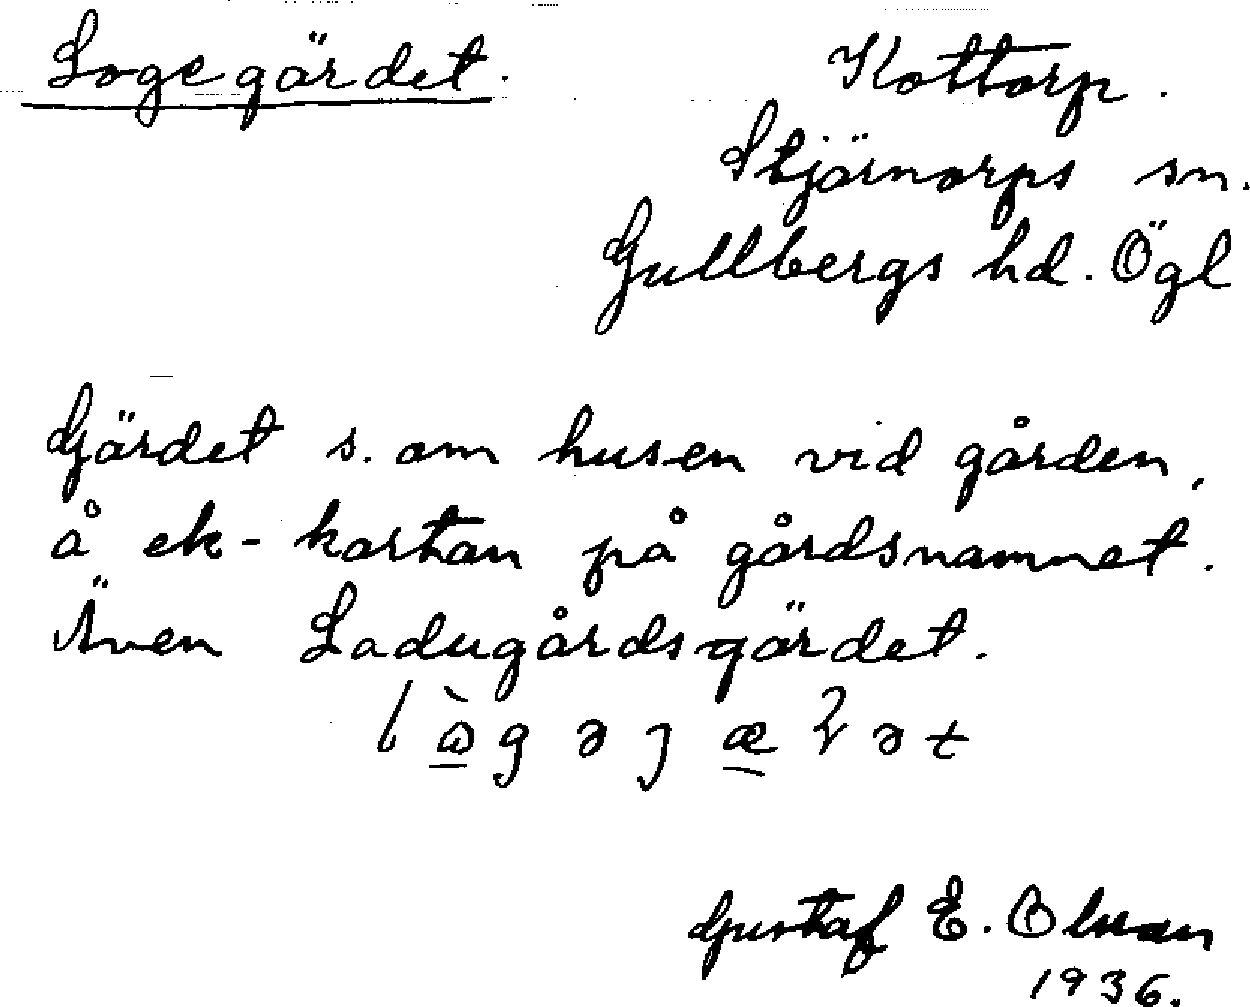 Logegärdet. Kottorp.
Stjärnorps sn.
Gullbergs hd. Ögl
Gärdet s. om husen vid gården,
å ek-kartan på gårdsnamnet.
Även Ladugårdsgärdet.
Gustaf E. Olsson
1936.